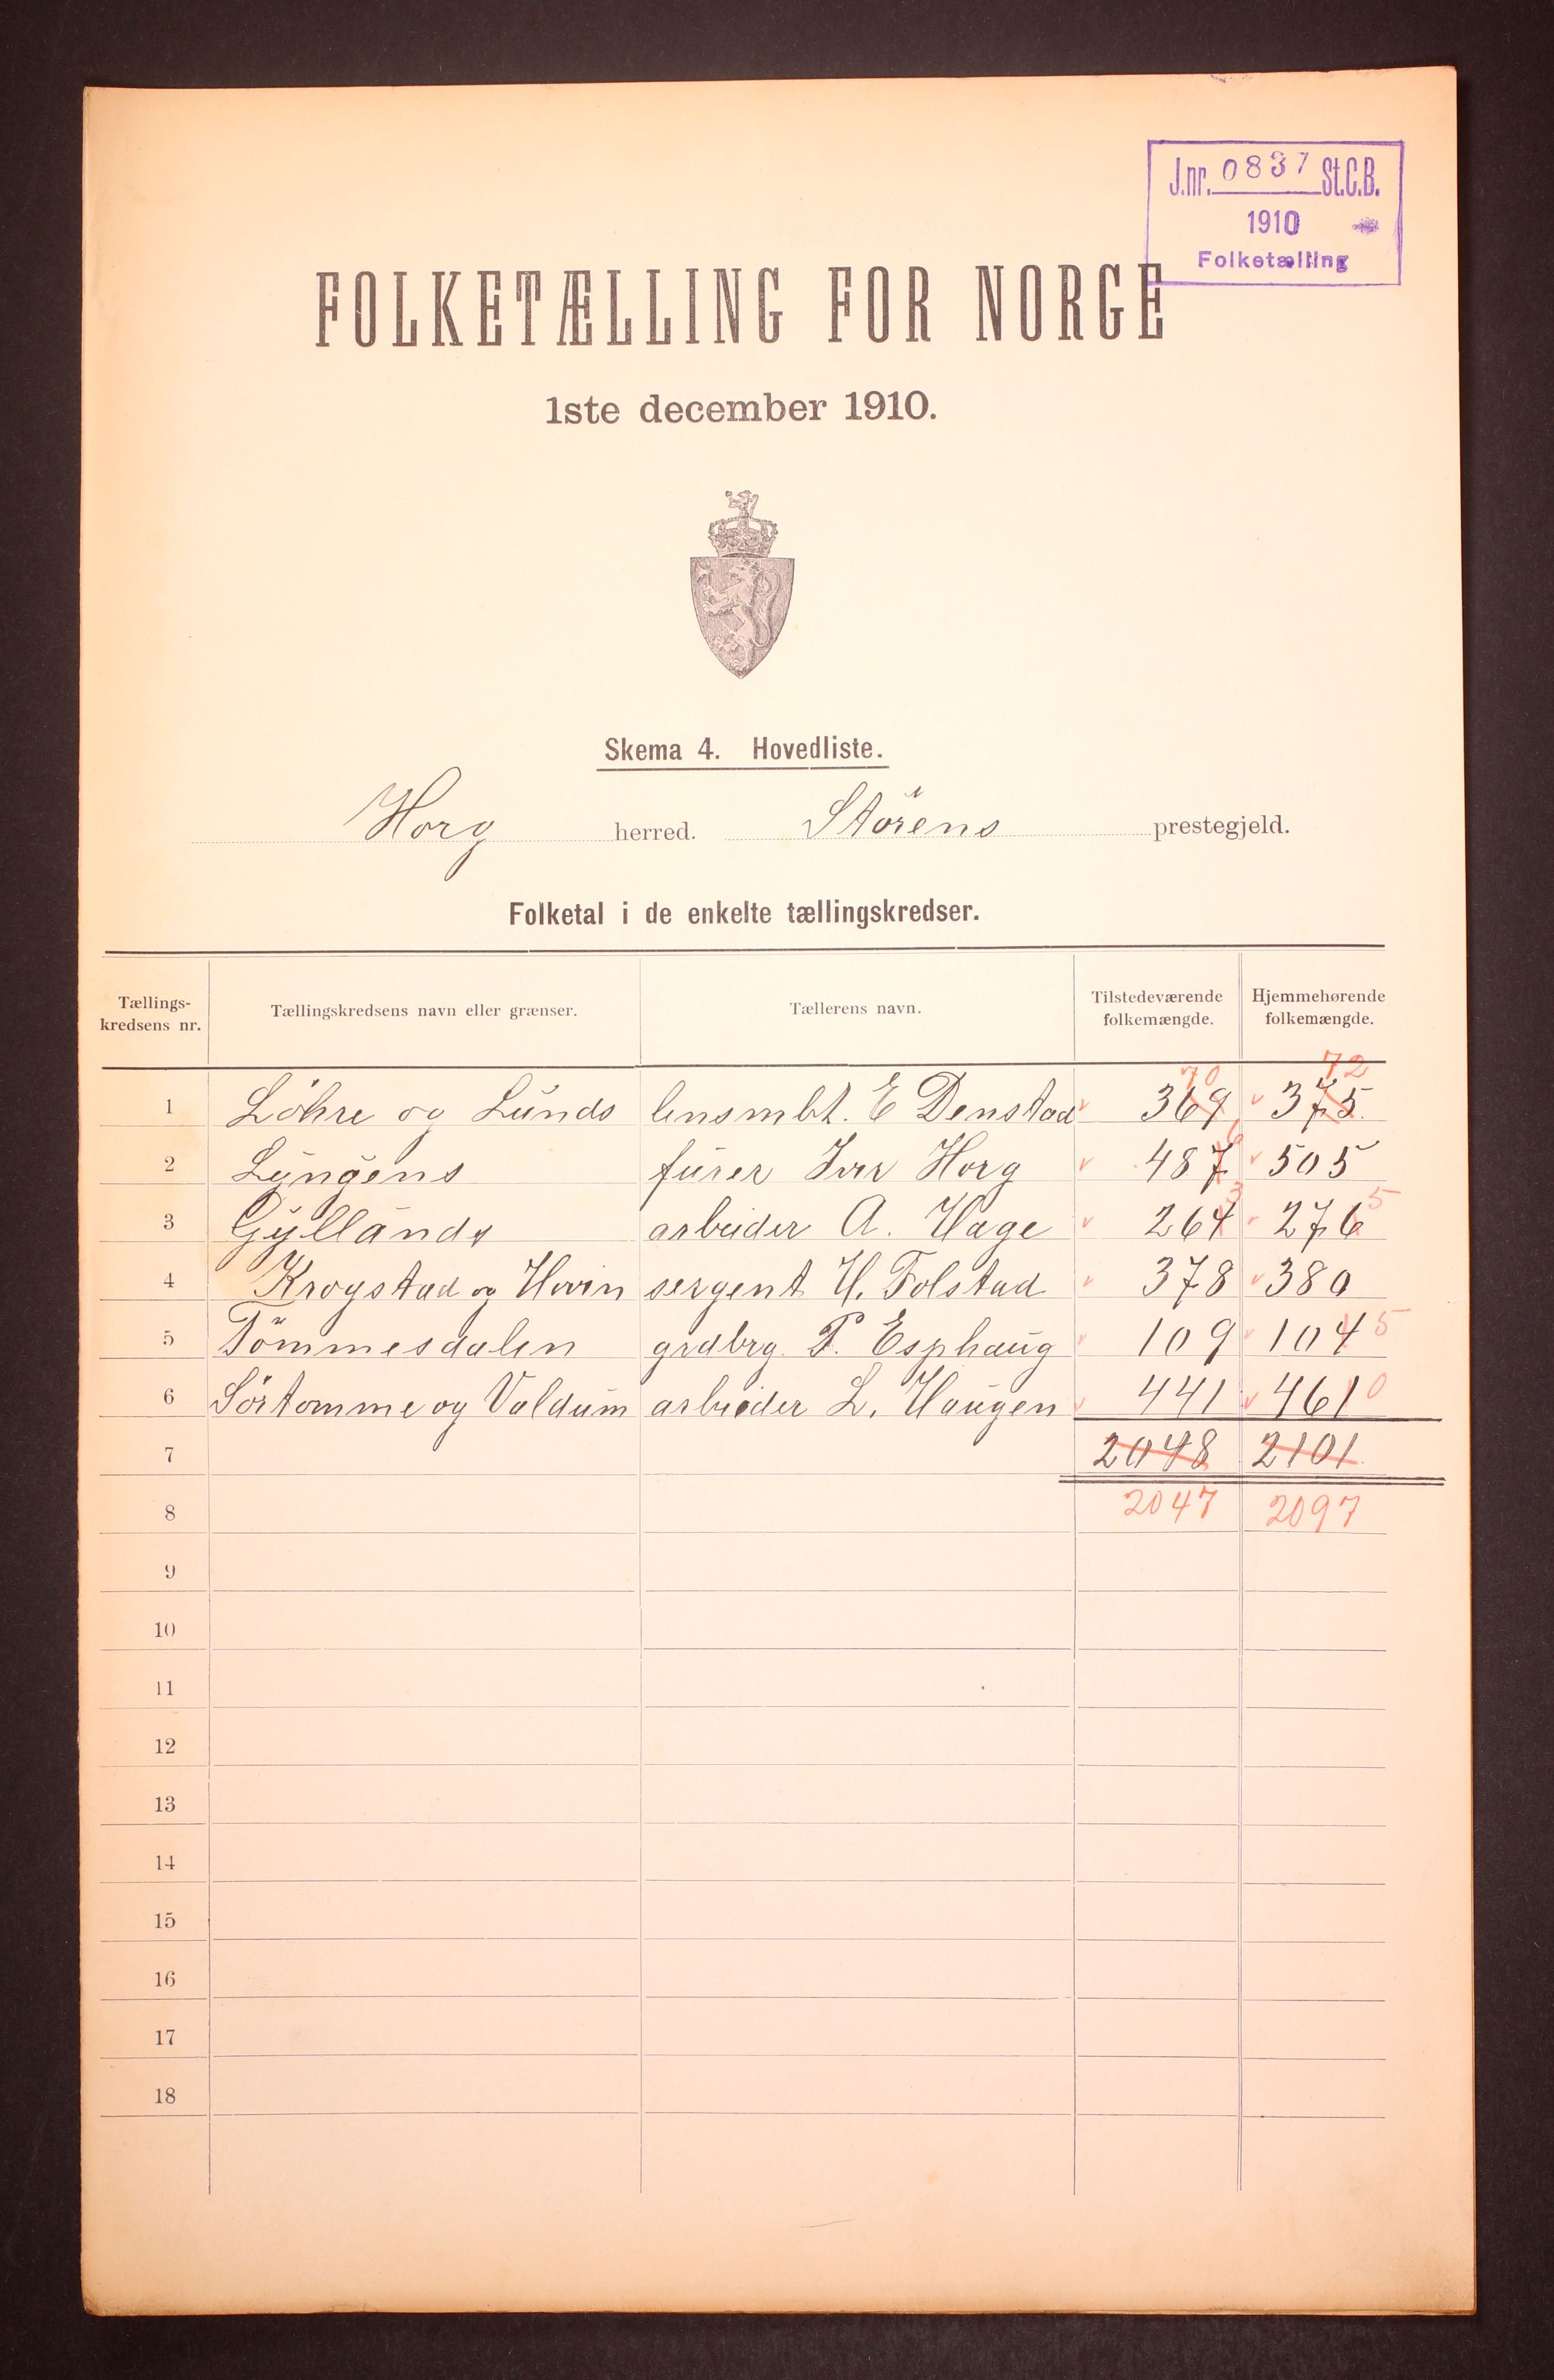 J.nr. 0837 St.C.B.
1910
Folketælling
FOLKETÆLLING FOR NORGE
1ste december 1910.
Skema 4. Hovedliste.
Horg herred. Störens prestegjeld.
Folketal i de enkelte tællingskredser.
Tællingskredsens nr. Tællingskredsens navn eller grænser. Tællerens navn. Tilstedeværende folkemængde. Hjemmehørende folkemængde.
70 72
1 Löhre og Lunds lensmbt. E Denstad 369 375
6
2 Lyngens furer Iver Horg 487 505
3 5
3 Gyllands arbeider A. Hage 264 276
4 Krogstad og Hovin sergent H. Folstad 378 380
5 Tömmesdalen grdbrg. P. Esphaug 109 104 5
6 Sörtomme og Valdum arbeider L. Haugen 441 461 0
7 2048 2101
8 2047 2097
9
10
11
12
13
14
15
16
17
18